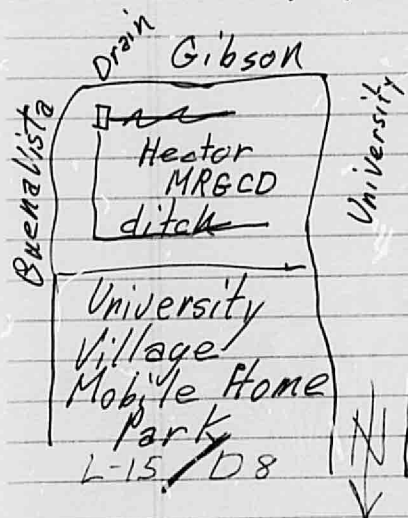 Drain
Gibson
BuenaVista
University
Hector
MRGCD
ditch
University
Village
Mobile Home
Park
L-15/D8
N